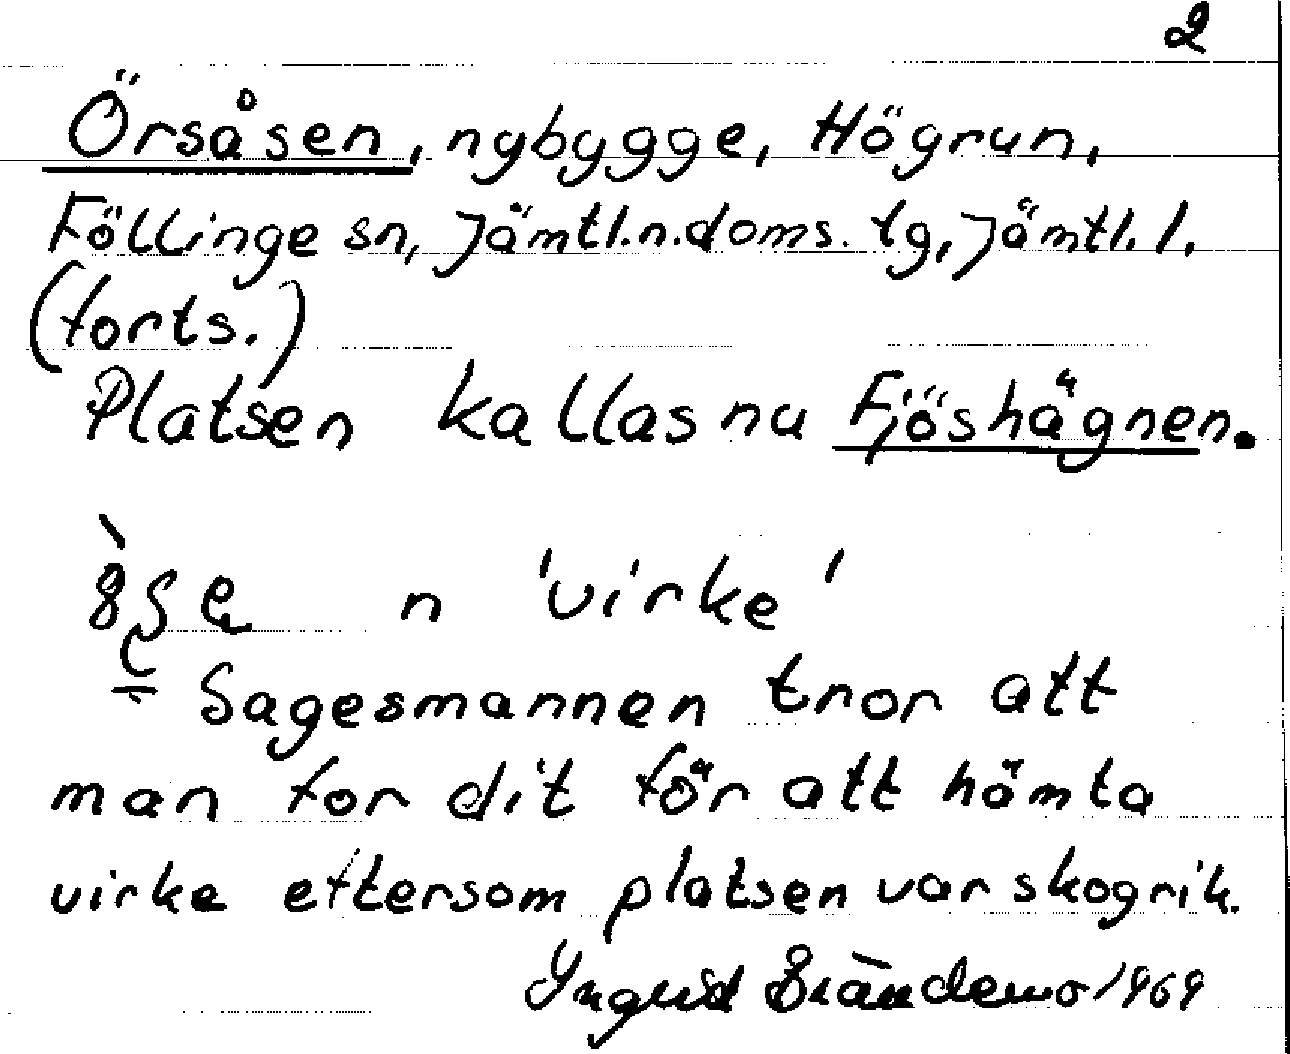 2
Örsåsen, nybygge, Högrun,
Föllinge sn, Jämtl.n.doms. lg, Jämtl. l.
(forts.)
Platsen kallas nu Fjöshägnen.
n 'virke'
Sagesmannen tror att
man for dit för att hämta
virke eftersom platsen var skogrik.
Ingrid Brändemo 1969